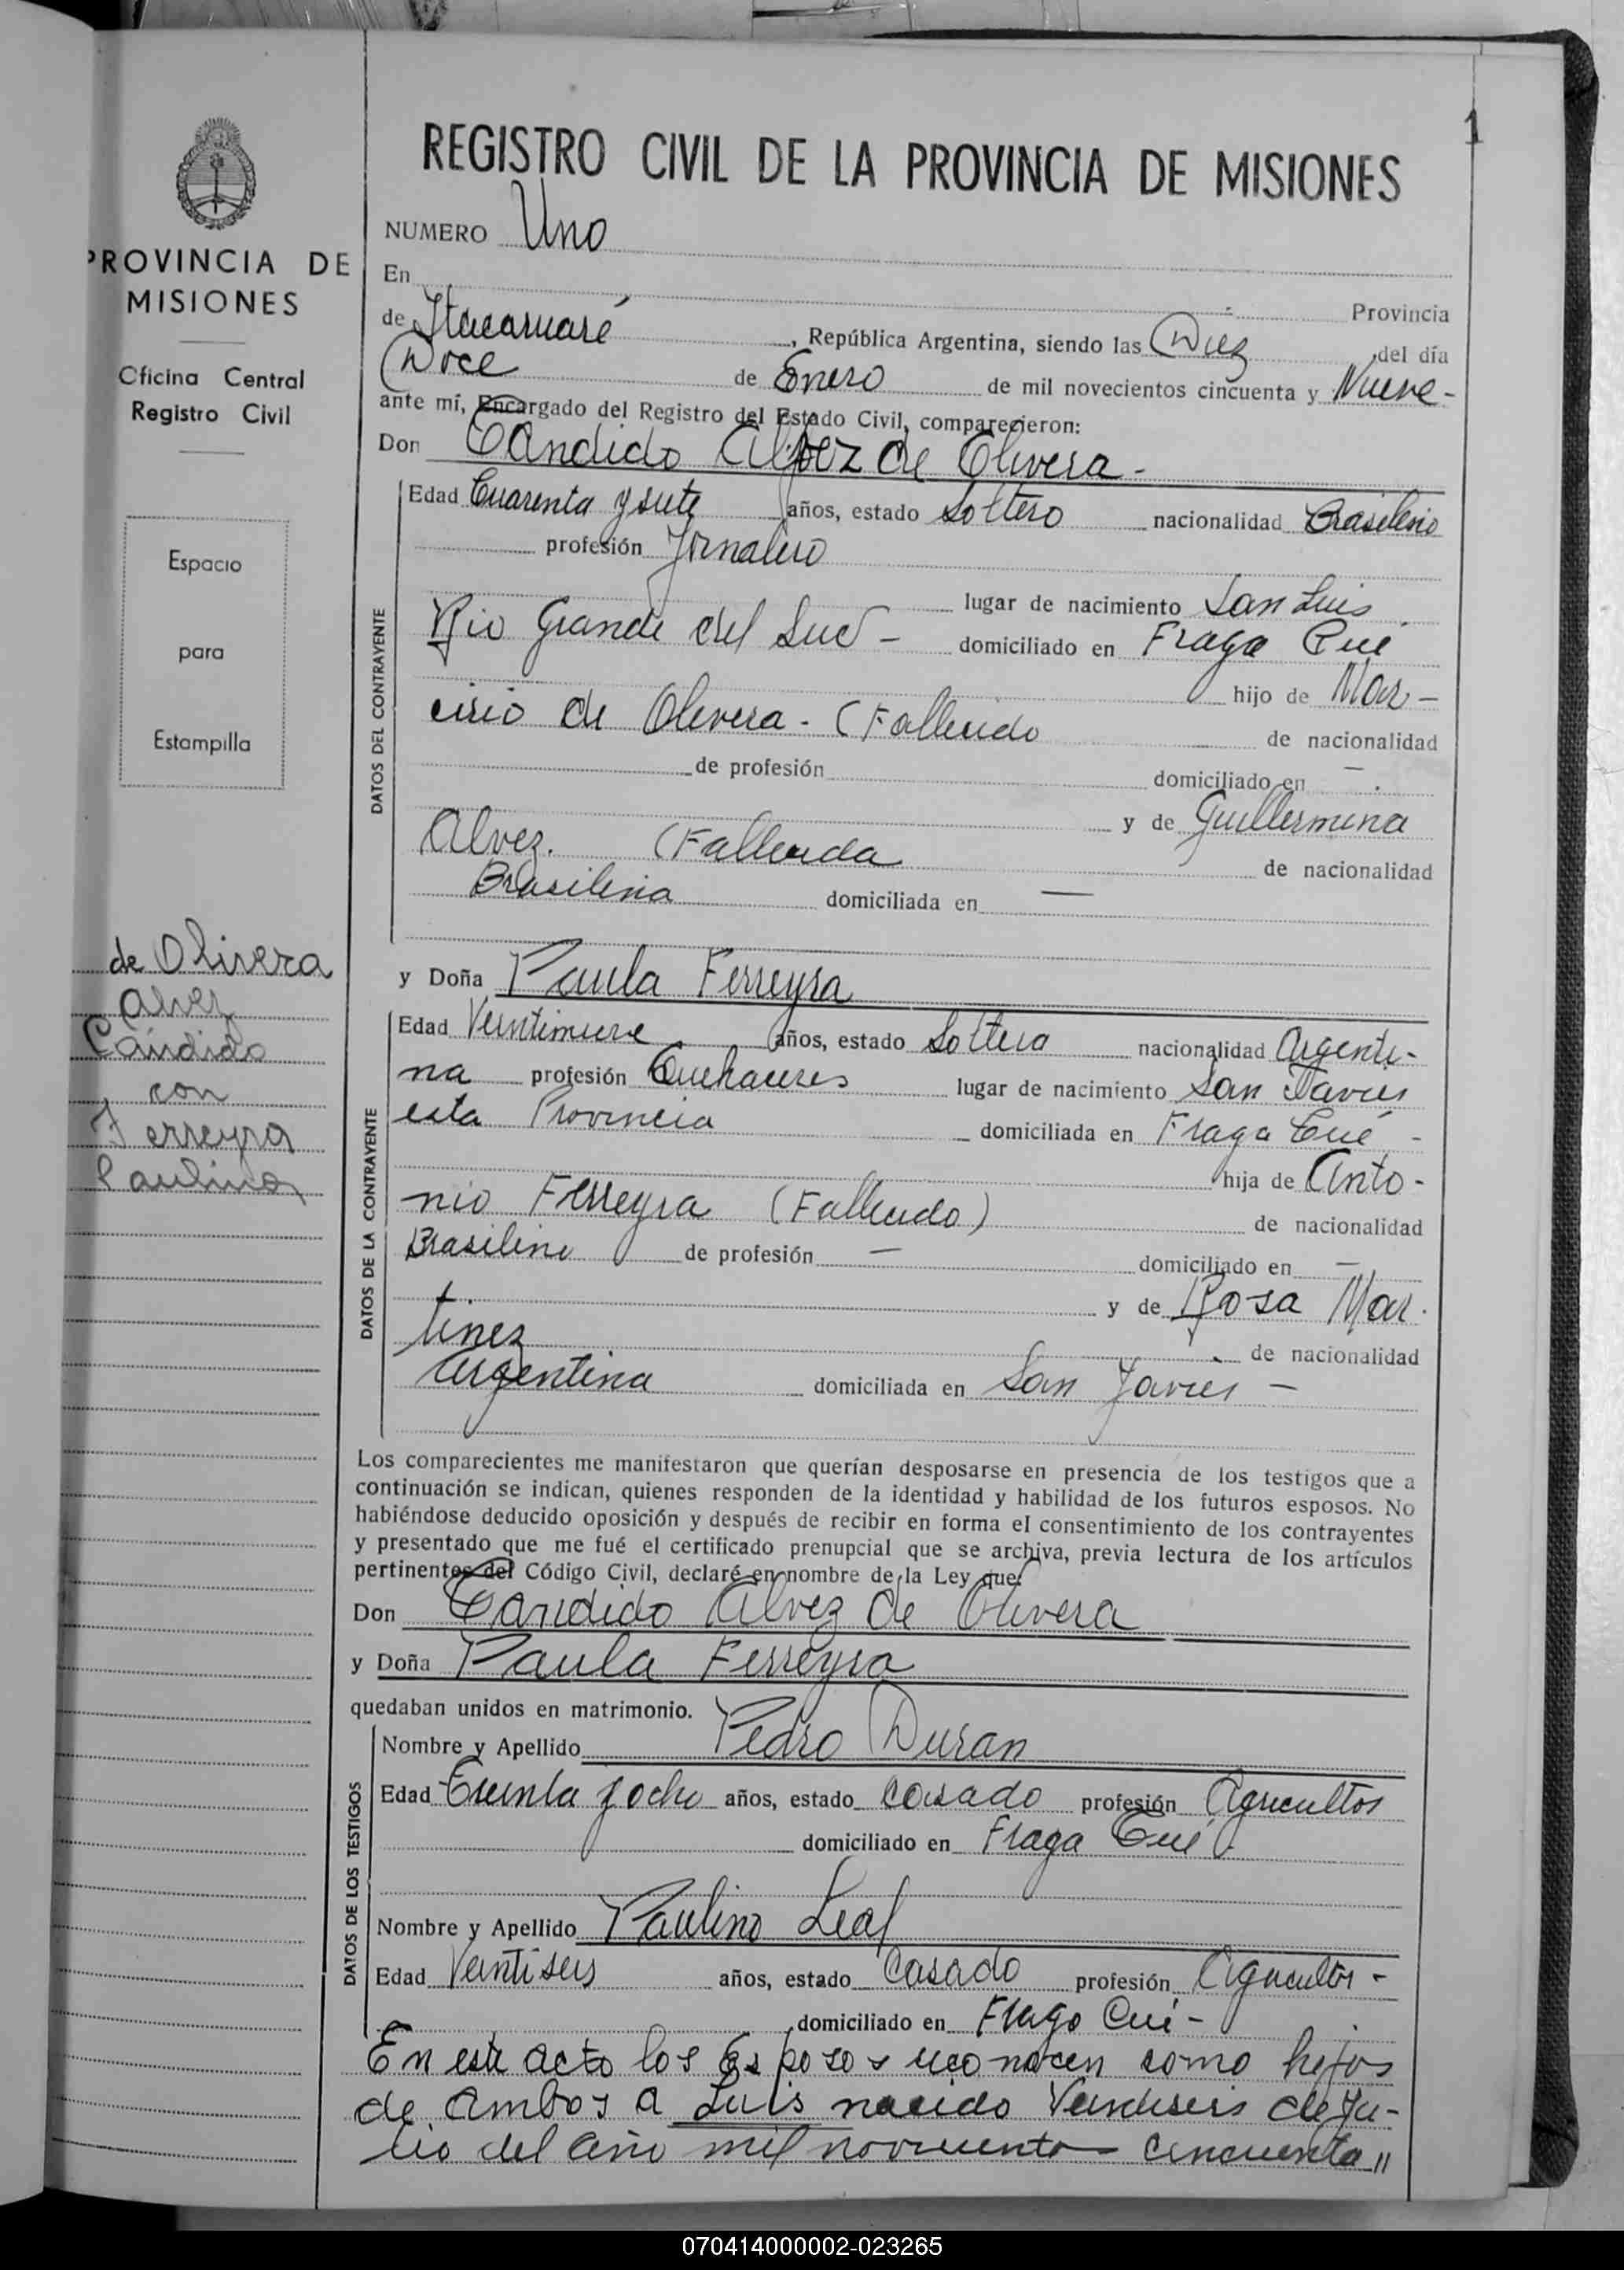 1
REGISTRO CIVIL DE LA PROVINCIA DE MISIONES
NUMERO Uno
En Provincia
de Itacaruaré, República Argentina, siendo las Diez del día
Doce de Enero de mil novecientos cincuenta y Nueve-
ante mí, Encargado del Registro del Estado Civil, comparecieron:
Don Candido Alvez de Olivera-
Edad Cuarenta y siete años, estado Soltero nacionalidad Brasileno
profesión Jornalero
lugar de nacimiento San Luis
Rio Grande del Sud - domiciliado en Fraga Cué
hijo de Mar-
cirio de Olivera - (Fallecido
de nacionalidad
de profesión domiciliado en -
y de Guillermina
Alvez. (Fallecida
de nacionalidad
Brasilena domiciliada en —
y Doña Paula Ferreyra
Edad Veintinueve años, estado Soltera nacionalidad Argenti-
na profesión Quehaceres lugar de nacimiento San Javier
esta Provincia domiciliada en Fraga Cué -
hija de Anto-
nio Ferreyra (Fallecido)
de nacionalidad
Brasilino de profesión — domiciliado en —
y de Rosa Mar.
tinez
de nacionalidad
Argentina domiciliada en San Javier -
Los comparecientes me manifestaron que querían desposarse en presencia de los testigos que a
continuación se indican, quienes responden de la identidad y habilidad de los futuros esposos. No
habiéndose deducido oposición y después de recibir en forma el consentimiento de los contrayentes
y presentado que me fué el certificado prenupcial que se archiva, previa lectura de los artículos
pertinentes del Código Civil, declaré en nombre de la Ley que:
Don Candido Alvez de Olivera
y Doña Paula Ferreyra
quedaban unidos en matrimonio.
Nombre y Apellido Pedro Duran
Edad Treinta y ocho años, estado Casado profesión Agricultor
domiciliado en Fraga Cué
Nombre y Apellido Paulino Leal
Edad Veintiseis años, estado Casado profesión Agricultor -
domiciliado en Frago Cué -
En este acto los Esposos reconocen como hijos
de Ambos a Luis nacido Veindiseis de Ju-
lio del año mil novecientos cincuenta "
DATOS DEL CONTRAYENTE
DATOS DE LA CONTRAYENTE
DATOS DE LOS TESTIGOS
PROVINCIA DE
MISIONES
Oficina Central
Registro Civil
Espacio
para
Estampilla
de Olivera
Alvez
Cándido
con
Ferreyra
Paulina
070414000002-023265